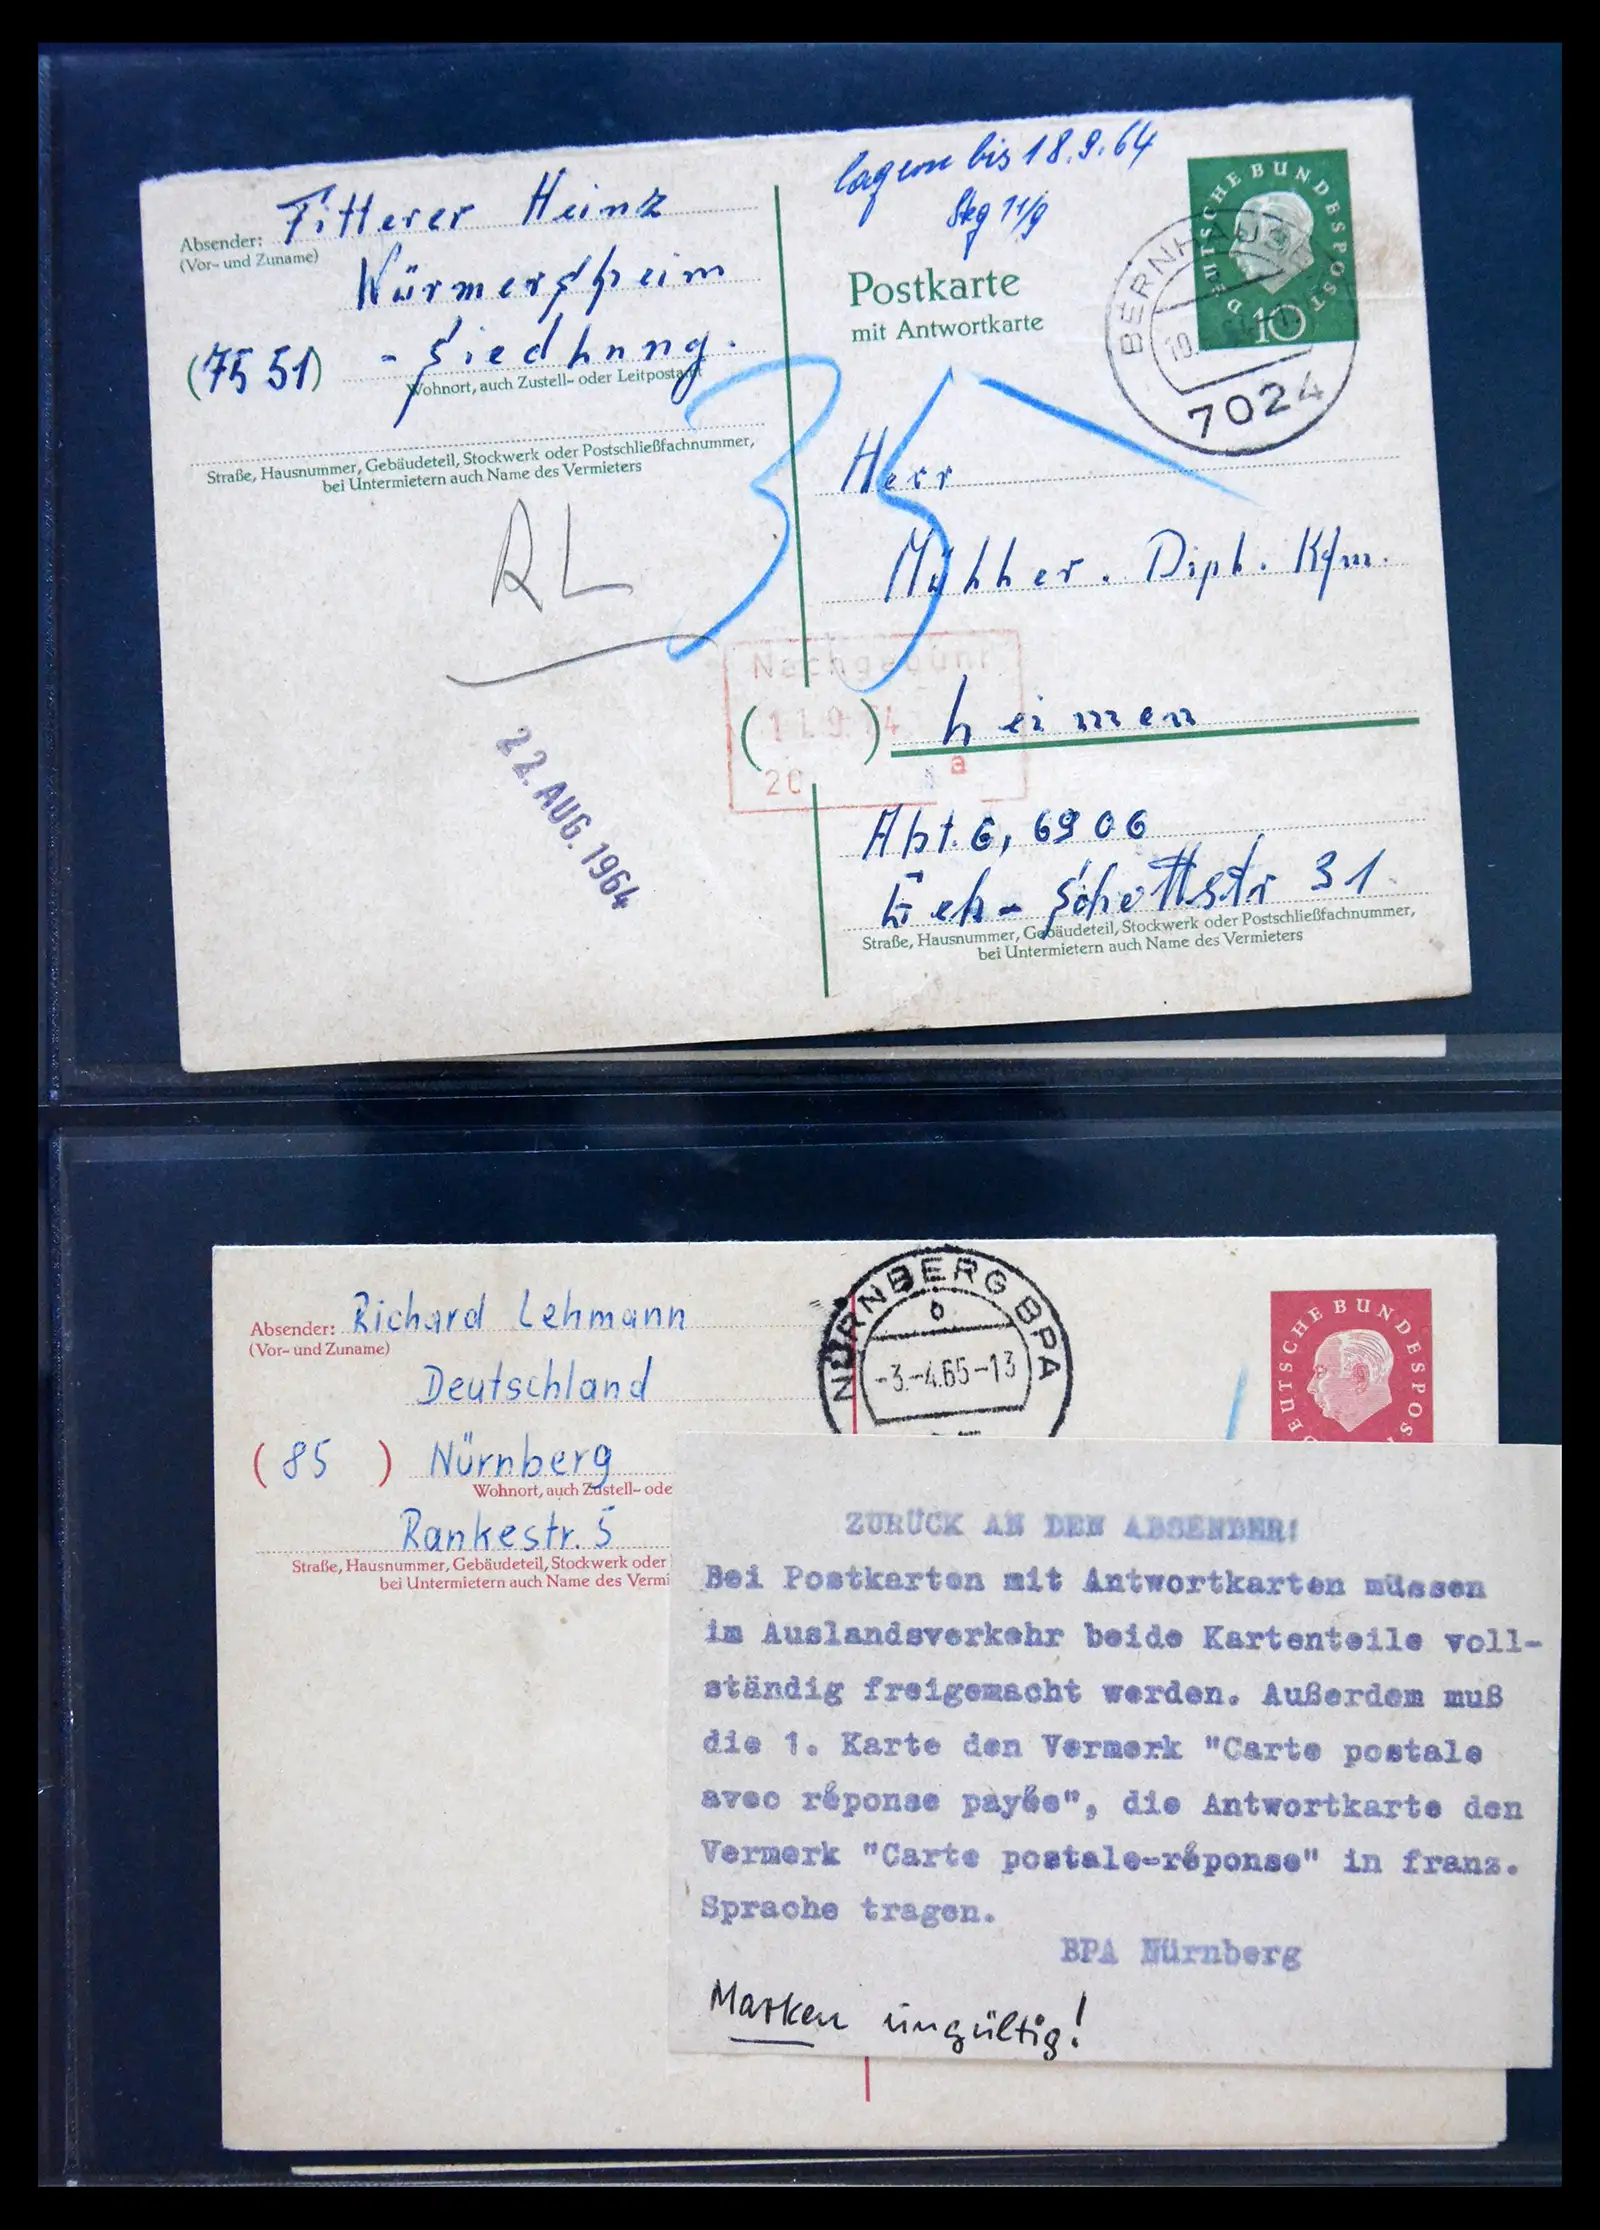 lagern bis 18.9.64
Stg 11/9
Absender: Fitterer Heinz
(Vor- und Zuname)
Würmersheim
(7551) - Siedhung.
Wohnort, auch Zustell- oder Leitpostamt
Straße, Hausnummer, Gebäudeteil, Stockwerk oder Postschließfachnummer,
bei Untermietern auch Name des Vermieters
RL
22. AUG. 1964
35
DEUTSCHE BUNDESPOST
10
BERNHAUSEN
7024
Postkarte
mit Antwortkarte
Herr
Mühher. Diph. Kfm.
Nachgebühr
11.9.64
20
a
( ) heimen
Abt. 6, 6906
Geh-Schottstr 31
Straße, Hausnummer, Gebäudeteil, Stockwerk oder Postschließfachnummer,
bei Untermietern auch Name des Vermieters
Absender: Richard Lehmann
(Vor- und Zuname)
Deutschland
(85) Nürnberg
Wohnort, auch Zustell- ode
Rankestr. 5
Straße, Hausnummer, Gebäudeteil, Stockwerk oder
bei Untermietern auch Name des Vermi
NÜRNBERG BPA
b
-3.-4.65-13
DEUTSCHE BUNDESPOS
ZURÜCK AN DEN ABSENDER!
Bei Postkarten mit Antwortkarten müssen
im Auslandsverkehr beide Kartenteile voll-
ständig freigemacht werden. Außerdem muß
die 1. Karte den Vermerk "Carte postale
avec réponse payée", die Antwortkarte den
Vermerk "Carte postale-réponse" in franz.
Sprache tragen.
BPA Nürnberg
Marken ungültig!